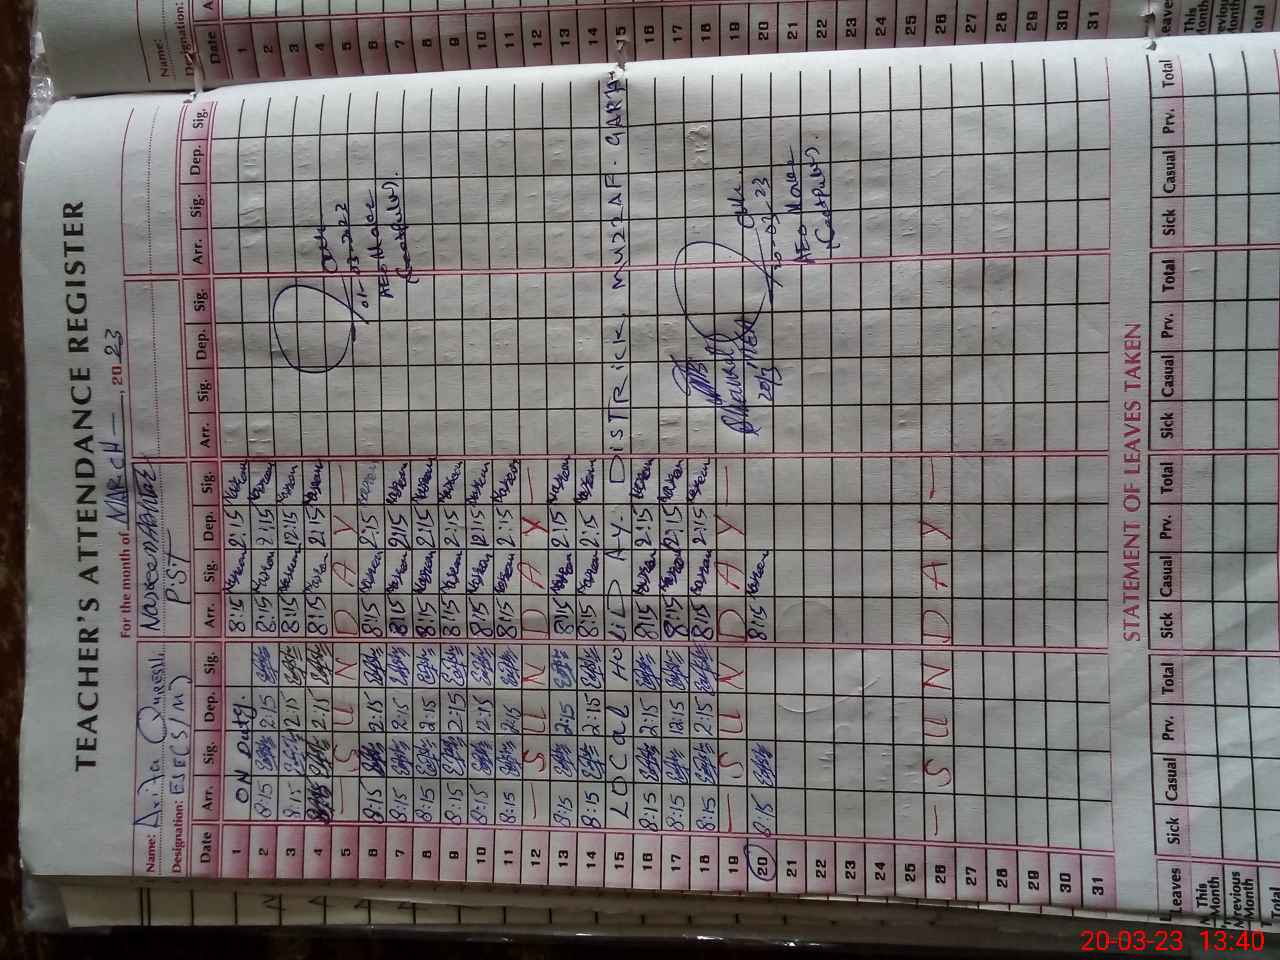 TEACHER'S ATTENDANCE REGISTER
For the month of MARCH — , 2023
Name: Arifa Qureshi Naseem
Designation: ESE(S/M) P.S.T
Date Arr. Sig. Dep. Sig. Arr. Sig. Dep. Sig. Arr. Sig. Dep. Sig. Arr. Sig. Dep. Sig.
1 ON Duty. 8:15 Naseem 2:15 Naseem
2 8:15 2:15 8:15 Naseem 2:15 Naseem
3 8:15 12:15 8:15 Naseem 12:15 Naseem
4 8:15 2:15 8:15 Naseem 2:15 Naseem
5 — S U N D A Y —
6 8:15 2:15 8:15 Naseem 2:15 Naseem
7 8:15 2:15 8:15 Naseem 2:15 Naseem
8 8:15 2:15 8:15 Naseem 2:15 Naseem
9 8:15 2:15 8:15 Naseem 2:15 Naseem
10 8:15 12:15 8:15 Naseem 12:15 Naseem
11 8:15 2:15 8:15 Naseem 2:15 Naseem
12 — S U N D A Y —
13 8:15 2:15 8:15 Naseem 2:15 Naseem
14 8:15 2:15 8:15 Naseem 2:15 Naseem
15 LOCal HOLiDAY. DiSTRicK, MUZZAF.GARH
16 8:15 2:15 8:15 Naseem 2:15 Naseem
17 8:15 12:15 8:15 Naseem 12:15 Naseem
18 8:15 2:15 8:15 Naseem 2:15 Naseem
19 — S U N D A Y —
20 8:15 8:15 Naseem
21
22
23
24
25
26 — S U N D A Y —
27
28
29
30
31
AEO
20/3 MEA
20-03-23
AEO
STATEMENT OF LEAVES TAKEN
Leaves Sick Casual Prv. Total Sick Casual Prv. Total Sick Casual Prv. Total Sick Casual Prv. Total
This Month
Previous Month
Total
Name:
Date
1
2
3
4
5
6
7
8
9
10
11
12
13
14
15
16
17
18
19
20
21
22
23
24
25
26
27
28
29
30
31
Leaves
This Month
Previous Month
Total
20-03-23 13:40